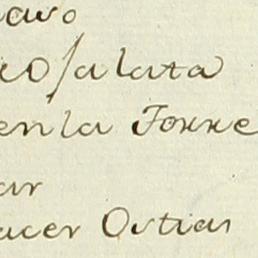 avo
co ſalata
en la Torre
ar
acer Ostias